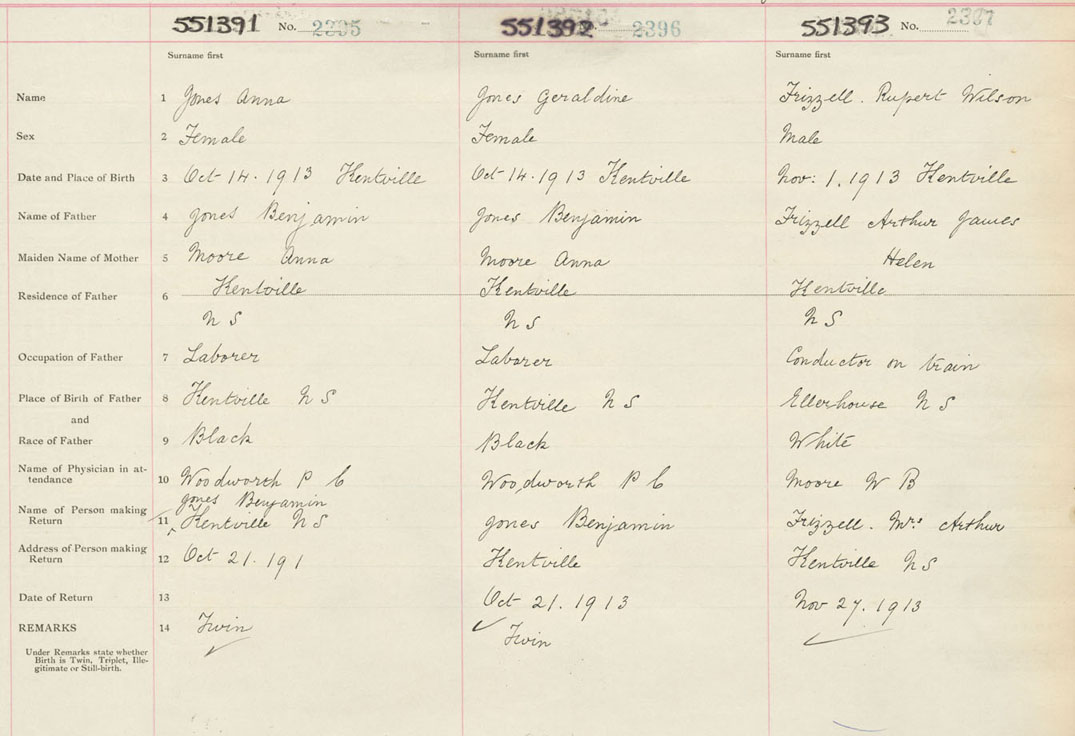 551391 No. 2395 551392 2396 551393 No. 2397
Surname first Surname first Surname first
Name 1 Jones Anna Jones Geraldine Frizzell. Rupert Wilson
Sex 2 Female Female Male
Date and Place of Birth 3 Oct 14. 1913 Kentville Oct 14. 1913 Kentville Nov: 1. 1913 Kentville
Name of Father 4 Jones Benjamin Jones Benjamin Frizzell Arthur James
Maiden Name of Mother 5 Moore Anna Moore Anna Helen
Residence of Father 6 Kentville Kentville Kentville
N S N S N S
Occupation of Father 7 Laborer Laborer Conductor on train
Place of Birth of Father 8 Kentville N S Kentville N S Ellerhouse N S
and
Race of Father 9 Black Black White
Name of Physician in at-
tendance 10 Woodworth P C Woodworth P C Moore W B
Jones Benjamin
Name of Person making
Return 11 Kentville N S Jones Benjamin Frizzell. Mrs Arthur
Address of Person making
Return 12 Oct 21. 191 Kentville Kentville N S
Date of Return 13 Oct 21. 1913 Nov 27. 1913
REMARKS 14 Twin Twin
Under Remarks state whether
Birth is Twin, Triplet, Ille-
gitimate or Still-birth.